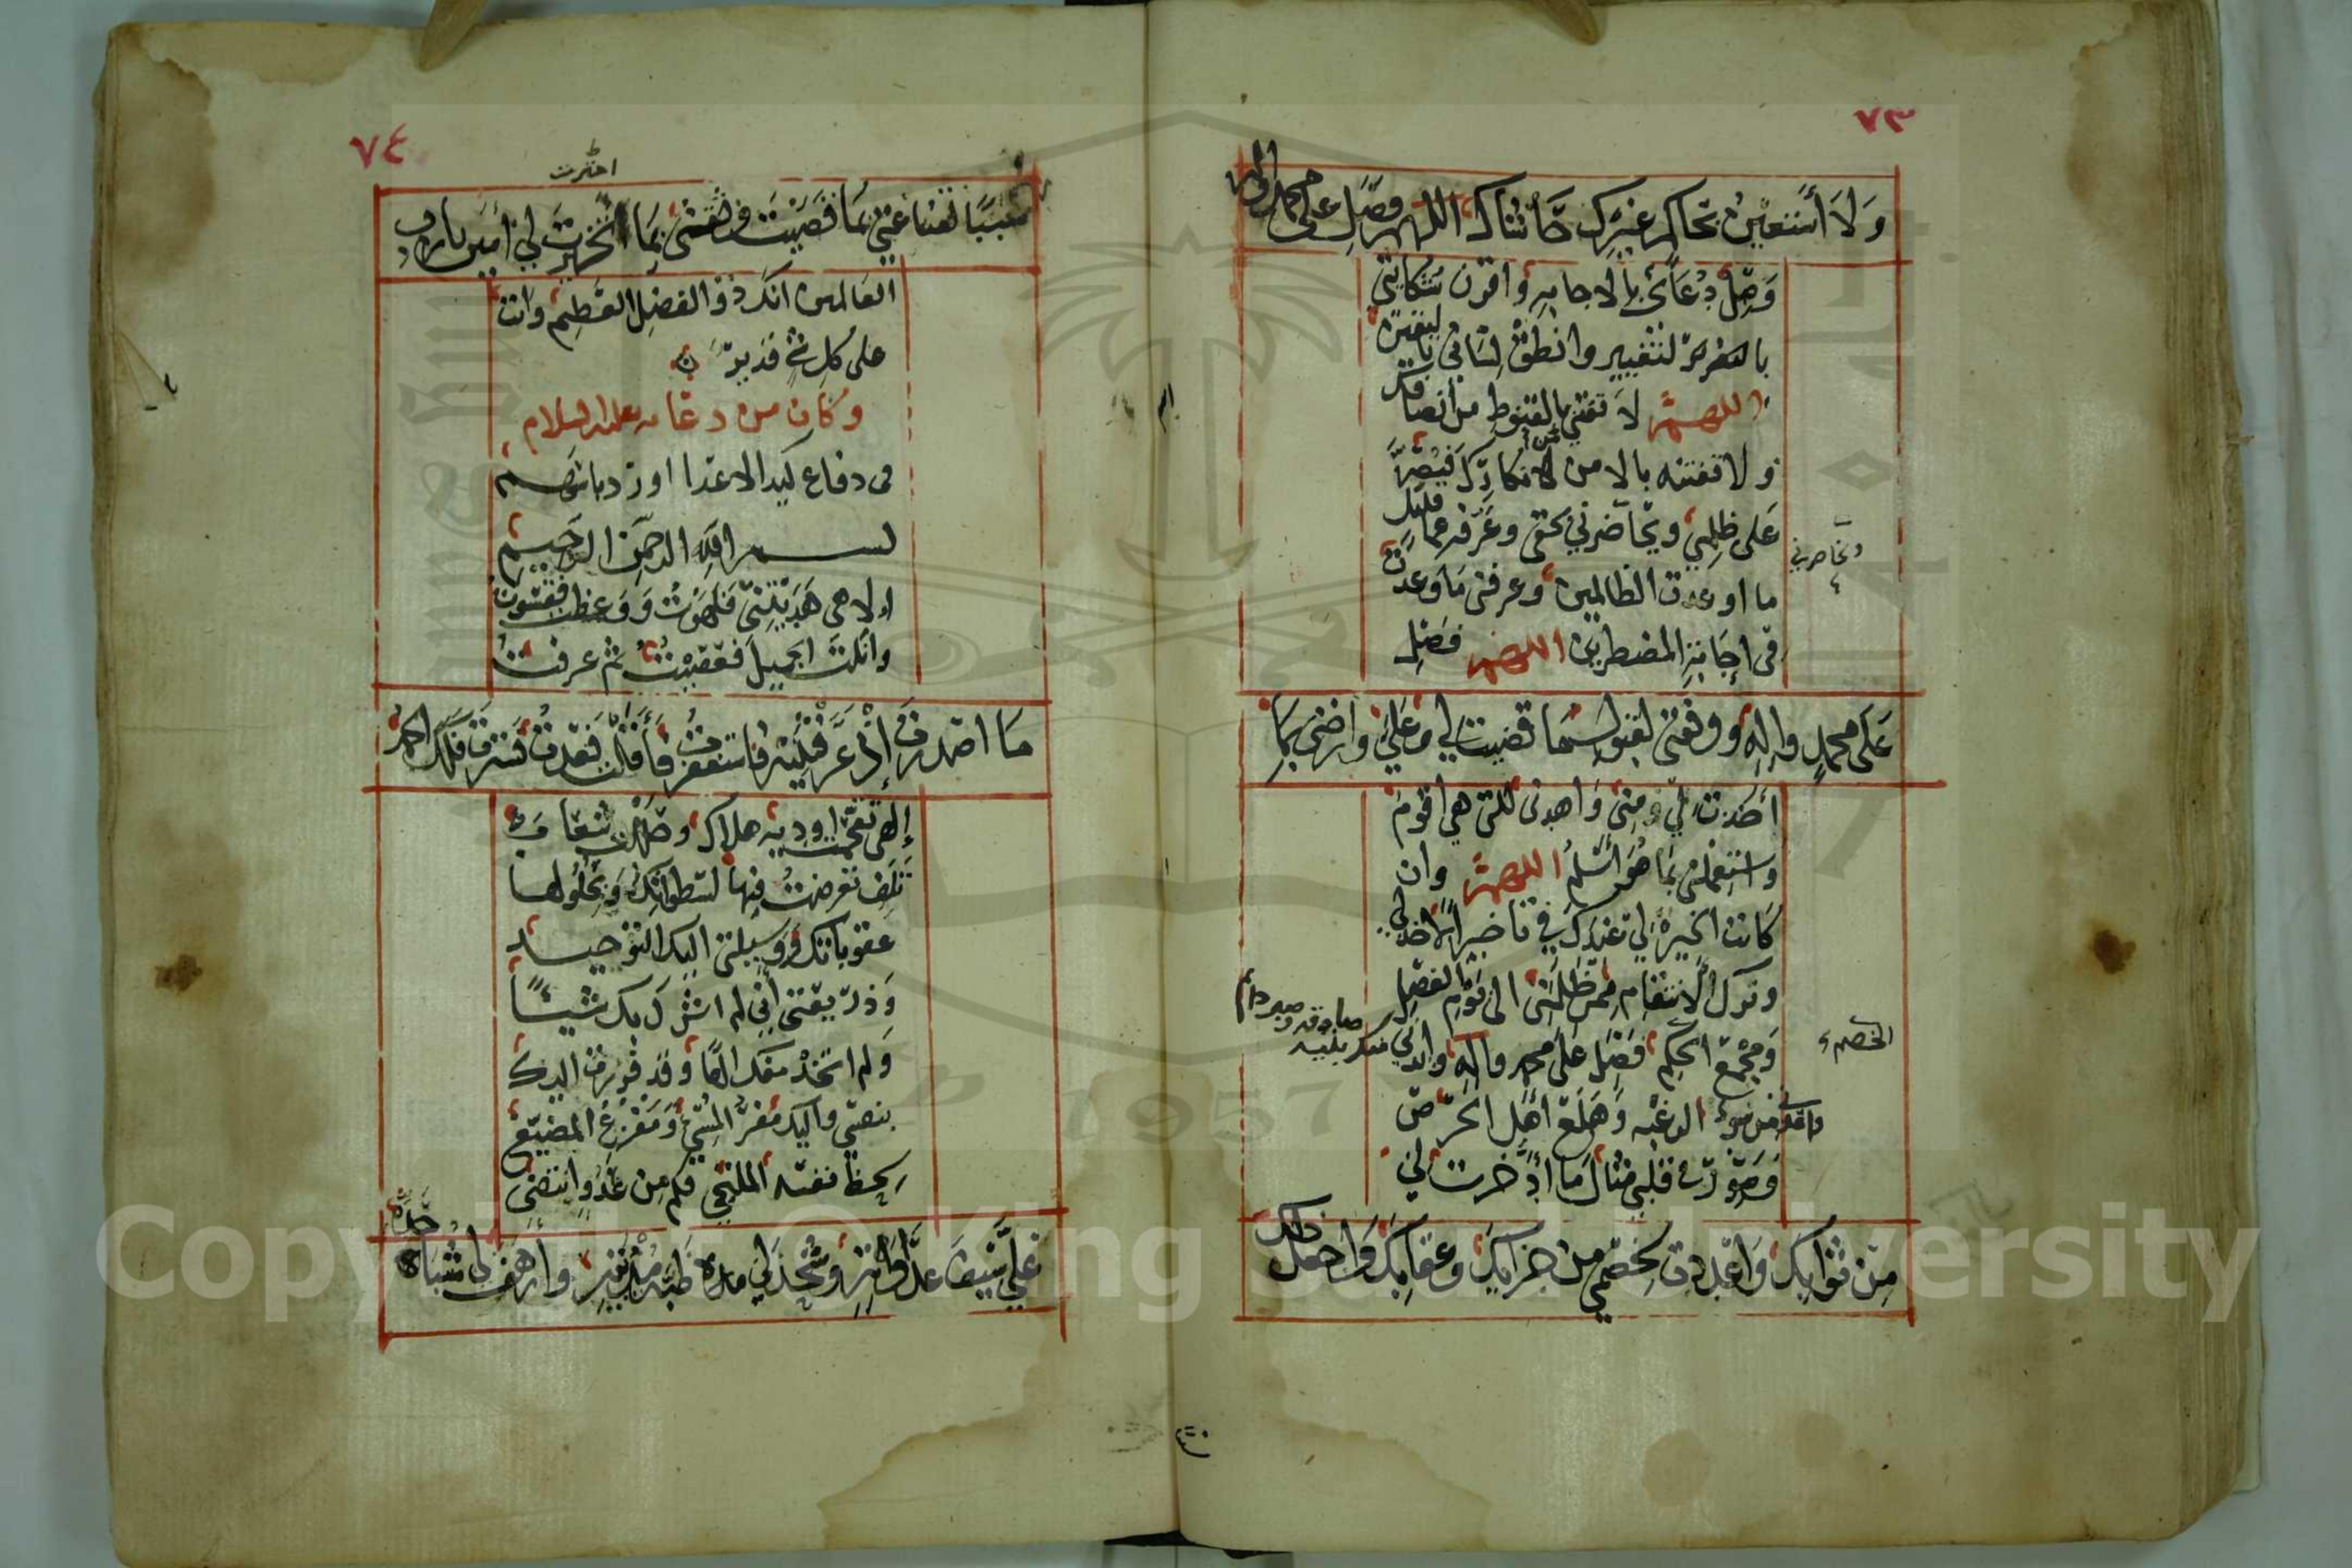 ٧٣
وَلَا أَسْتَعِينُ بحاكمٍ غَيْرِكَ حَاشَاكَ اللهم فصَلِّ على محمد واله
وَصِلْ دُعَائي بالاجابه وَاقرن شكايتي
بالتغيير وانطق لساني
اللهم لا تفتني بالقنوط من انصافك
ولا تفتنه بالامن من انكارك فيُصِرَّ
عَلى ظلمي ويحاضرني بحقي وعَرِّفه عما قليل
ويحاصرني
ما اوعدت الظالمين وعرفني مَا وعدت
في إجابة المضطرين اللهم فصَلِ
عَلَى محمدٍ والِهِ ووفقني لقبول مَا قضيت لي وعَلَيَّ وارضني بمَا
أخذت لي ومني وَاهدني للتي هي اقوَم
واستعملني بمَا هُوَ أَسْلَمُ اللهم وان
كَانت الخيرَةُ لي عندك في تاخير الاخذ لي
وترك الانتقام ممن ظَلَمَني الى يَوْمِ الفَصل
وَمجمع الخصم فَصَلِّ عَلى محمد وآله وايدني منك بنيه صادقه وصبر دائم
الخصم
واعذني من سوء الرغبه وَهَلَع اهل الحرص
وَصَوِّر في قلبي مثال مَا ادَّخرت لي
مِن ثَوَابِكَ وَاعْدَدت لخصمي من جزايك وعقابِكَ وَاجعل ذلك
٧٤
اخترت
سَبَبًا لقناعتي بمَا قَضَيْتَ وثقتي بمَا تخيرت لي آمين يا رب
العَالمين انك ذو الفضل العَظيم وانت
على كل شي قديرٌ
وكان من دعايه عليه السلام
في دفاع كيد الاعدا ورد باسهم
بسم الله الرحمن الرحيم
الاهي هَدَيْتني فلهَوتُ وَوَعظت فقسَوتُ
وابليت الجميل فعَصَيْتُ ثم عرفتُ
مَا اصدرت إذ عَرَّفْتَنِيه فاستغفرتُ فأقلت فعُدتُ فسترت فلك الحمد
إلهي تقحمت اودية هلاك وحللت شعَاب
تَلَف تعرضتُ فيها لسَطواتك وَبحُلُولها
عقوباتك وَوسيلتي اليك التوحيد
وَذريعتي اني لم اشرك بك شيئًا
وَلم اتخذ معك الهًا وقد فررت اليك
بنفسي واليك مَفَرُّ المسيء وَمَفْزَعُ المضيع
لحظ نفسه الملتجي فكم من عَدُوٍّ انتضى
عَلَيَّ سَيف عدَاوته وشَحَذَ لي ظبة مُدْيَتِهِ وأرهف لي شَبَا حَدِّه